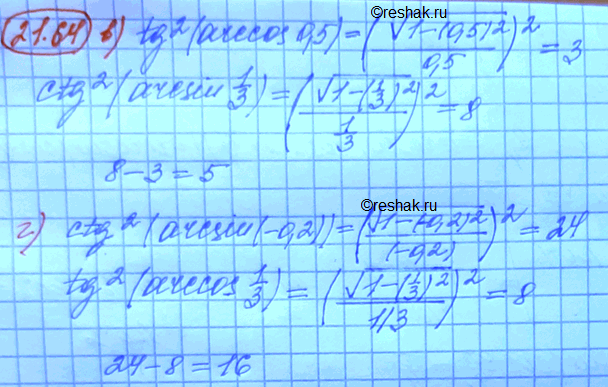 ©reshak.ru
21.64 в) tg²(arccos 0,5) = (√(1-(0,5)²)/0,5)² = 3
ctg²(arcsin 1/3) = (√(1-(1/3)²)/(1/3))² = 8
8 - 3 = 5
©reshak.ru
г) ctg²(arcsin(-0,2)) = (√(1-(-0,2)²)/(-0,2))² = 24
tg²(arccos 1/3) = (√(1-(1/3)²)/(1/3))² = 8
24 - 8 = 16